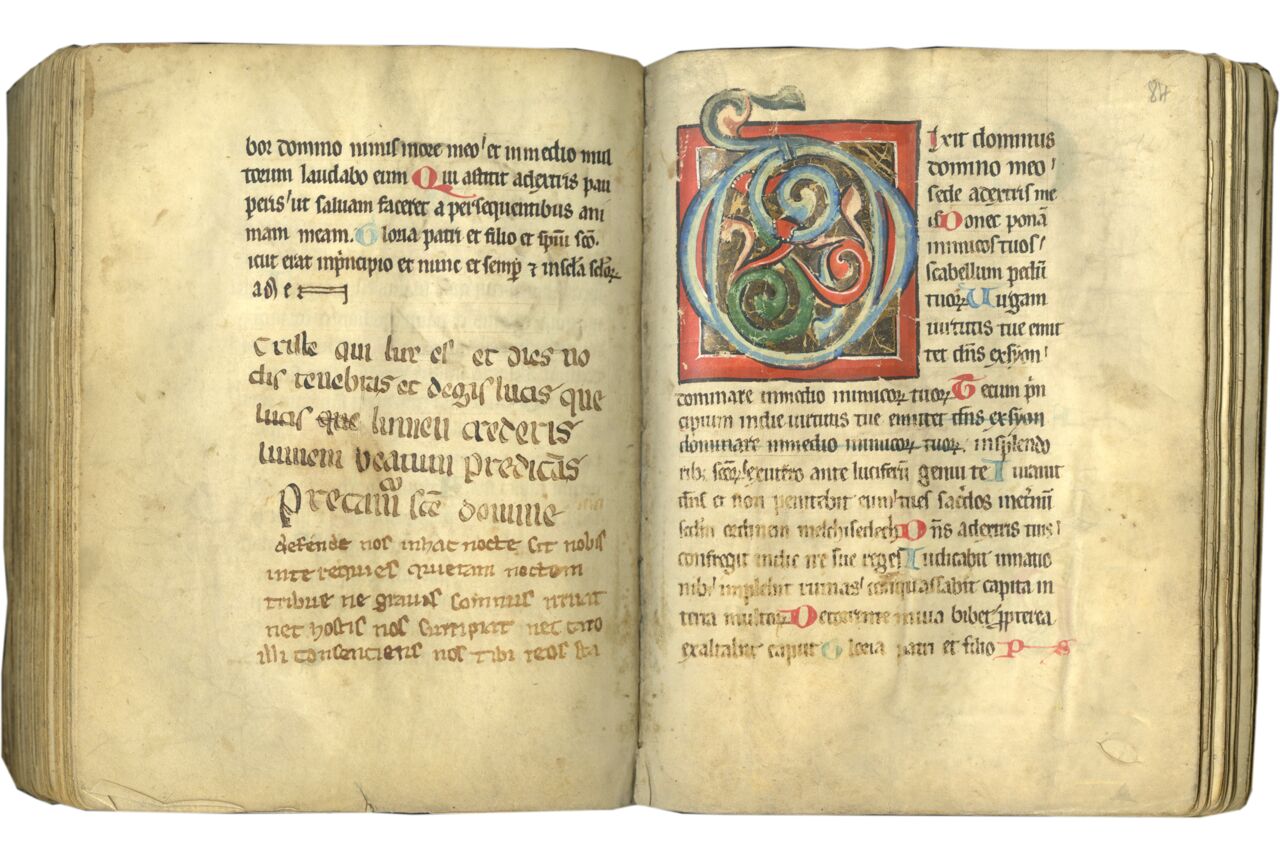 bor domino nimis in ore meo et in medio mul
torum laudabo eum Qui astitit adextris pau
peris ut saluam faceret a persequentibus ani
mam meam. Gloria patri et filio et spiu sco.
icut erat inprincipio et nunc et semp & inscla sclor
ame
criste qui lux es et dies no
ctis tenebras et degis lucis que
lucis que lumen crederis
lumem beatum predicas
Precamur sce domine
defende nos inhac nocte sit nobis
inte requies quietam noctem
tribue ne gravis somnus irruat
nec hostis nos surripiat nec caro
illi consenciens nos tibi reos sta
84
Ixit dominus
domino meo
sede adextris me
is Donec ponā
inimicos tuos
scabellum pedū
tuor Uirgam
uirtutis tue emit
tet dns exsyon
dominare inmedio inimicor tuor Tecum prin
cipium indie uirtutis tue emittet dns exsyon
dominare inmedio inimicor tuor. insplendo
rib scor exutero ante luciferū genui te Iurauit
dns et non penitebit eum tu es sacdos ineternū
scdm ordinem melchisedech Dns adextris tuis
confregit indie ire sue reges Iudicabit innatio
nib implebit ruinas conquassabit capita in
terra multor Detorrente inuia bibet ppterea
exaltabit caput Gloria patri et filio ps